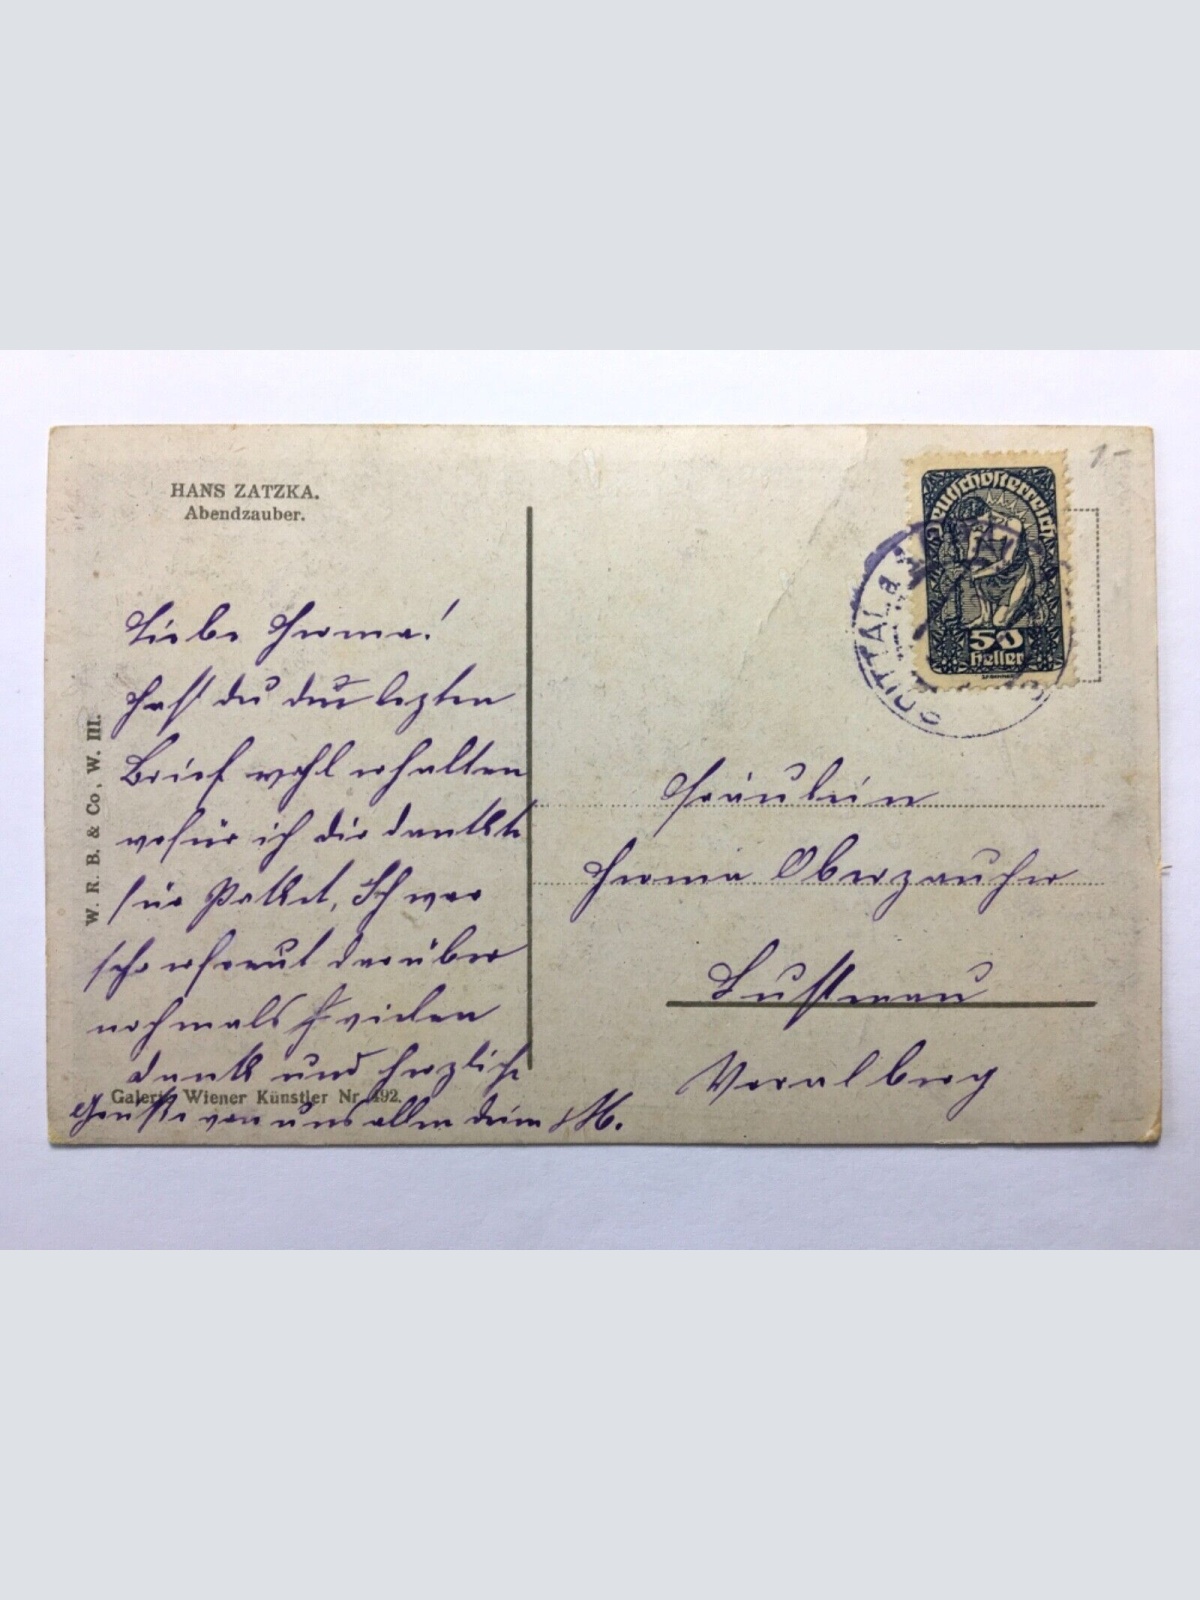 HANS ZATZKA.
Abendzauber.
Liebe Herma!
hast du den lezten
Brief wohl erhalten
wofür ich dir dankte
für Paket, Ich war
sehr erfreut darüber
nochmals vielen
dank und herzliche
Grüße von uns allen dein M.
Galerie Wiener Künstler Nr. 492.
W. R. B. & Co, W. III.
Deutschösterreich
50
Heller
SPITTAL a
1-
Fräulein
Herma
Lustenau
Voralberg